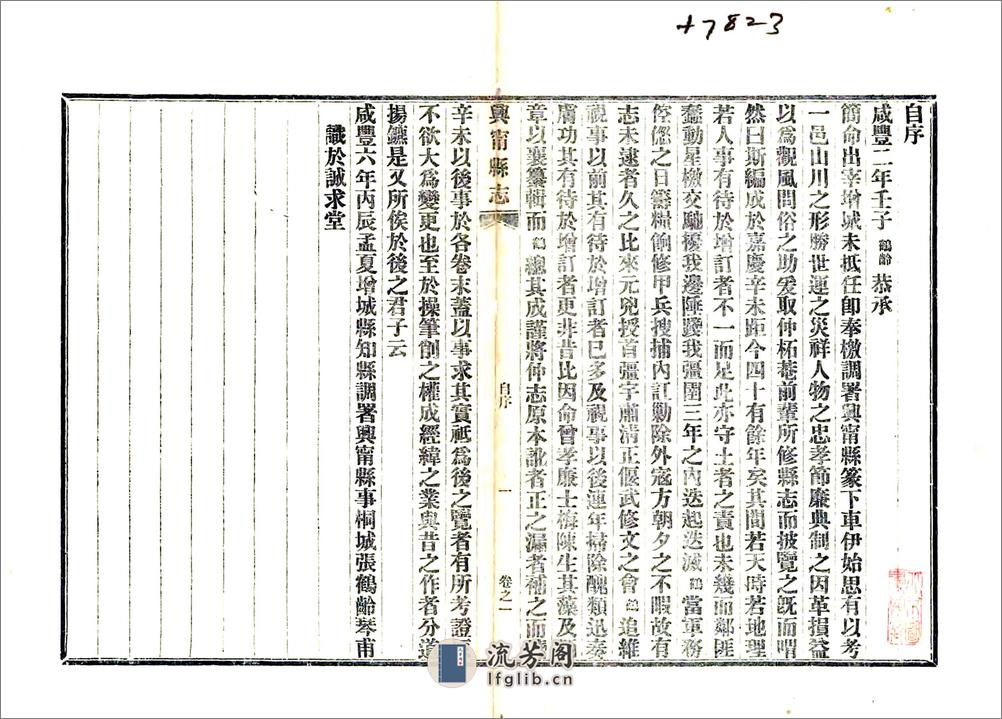 +7823
自序
咸豐二年壬子鶴齡恭承
簡命出宰增城未抵任卽奉檄調署興甯縣篆下車伊始思有以考
一邑山川之形勝世運之災祥人物之忠孝節廉典制之因革損益
以爲觀風問俗之助爰取仲柘菴前輩所修縣志而披覽之旣而喟
然曰斯編成於嘉慶辛未距今四十有餘年矣其間若天時若地理
若人事有待於增訂者不一而足此亦守土者之責也未幾而鄰匪
蠢動星檄交馳擾我邊陲躪我彊圉三年之內迭起迭滅鶴當軍務
倥傯之日籌糧餉修甲兵搜捕內訌勦除外寇方朝夕之不暇故有
志未逮者久之比來元兇授首彊宇肅清正偃武修文之會鶴追維
視事以前其有待於增訂者已多及視事以後連年掃除醜類迅奏
膚功其有待於增訂者更非昔比因命曾孝廉士梅陳生其藻及
章以襄纂輯而鶴總其成謹將仲志原本訛者正之漏者補之而
興甯縣志
自序
一
卷之一
辛未以後事於各卷末蓋以事求其實祗爲後之覽者有所考證
不欲大爲變更也至於操筆削之權成經緯之業與昔之作者分道
揚鑣是又所俟於後之君子云
咸豐六年丙辰孟夏增城縣知縣調署興甯縣事桐城張鶴齡琴甫
識於誠求堂
流芳阁
lfglib.cn